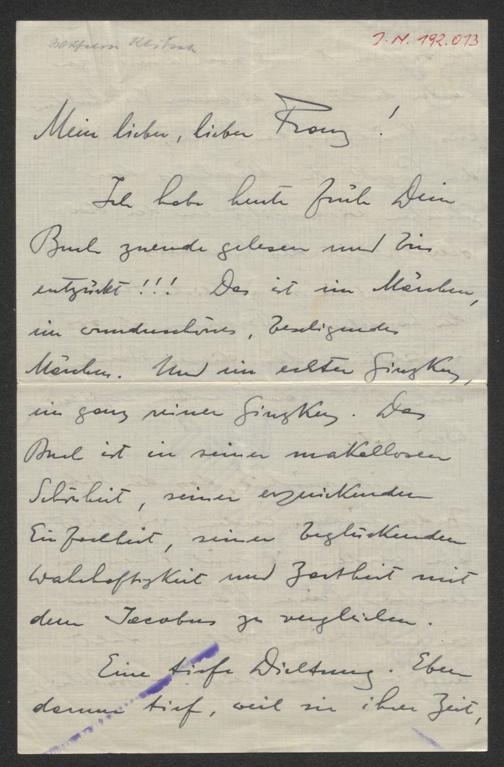 J. N. 192.013
Mein lieber, lieber Franz!
Ich habe heute früh Dein
Buch zuende gelesen und bin
entzückt!!! Das ist ein Märchen,
ein wunderschönes, beseligendes
Märchen. Und ein echter Ginzkey,
ein ganz reiner Ginzkey. Das
Buch ist in seiner makellosen
Schönheit, seiner erquickenden
Einfachheit, seiner beglückenden
Wahrhaftigkeit und Zartheit mit
dem Jacobus zu vergleichen.
Eine tiefe Dichtung. Eben
darum tief, weil sie ihrer Zeit,